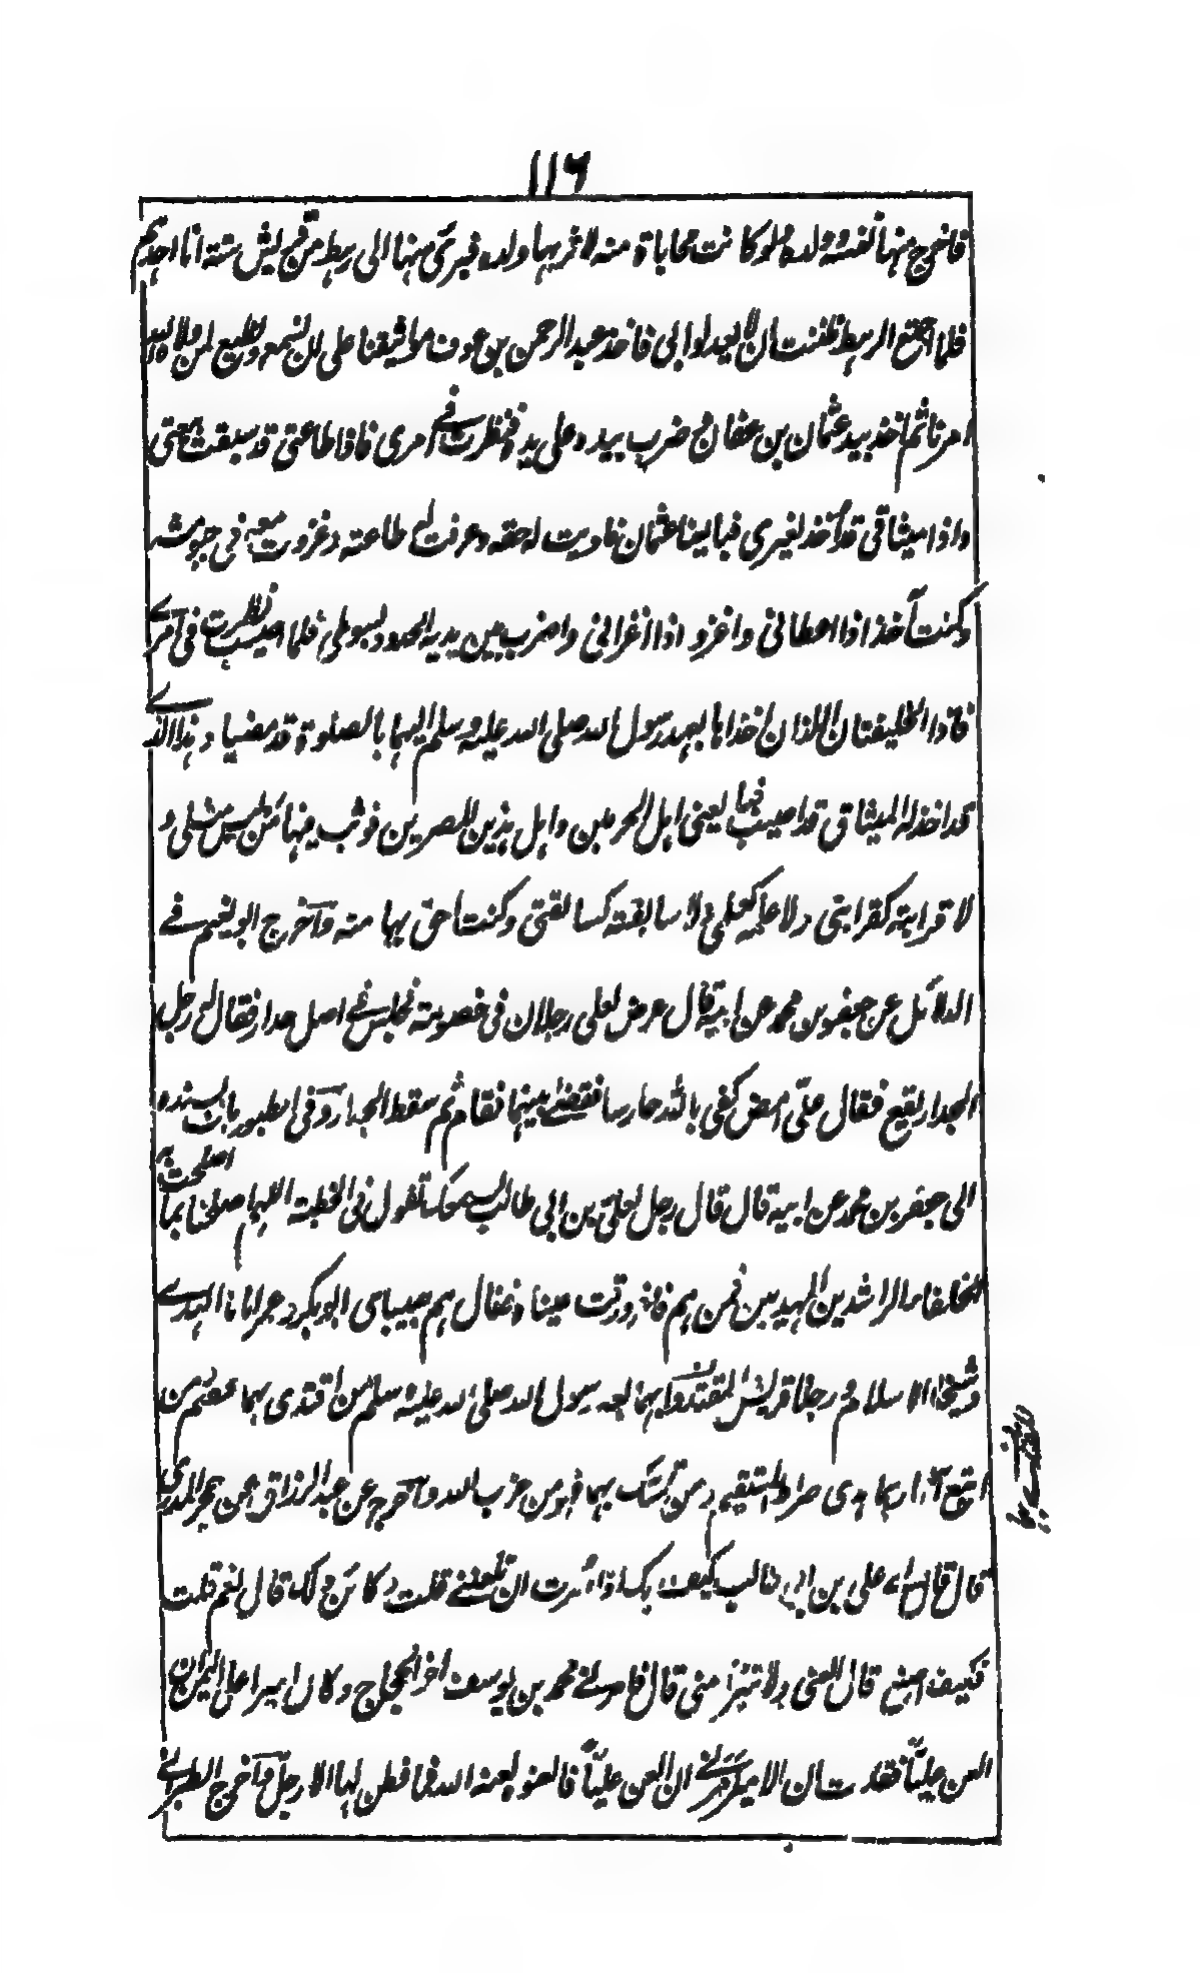 ١١٦
فاخرج منها نفسه وولده ولو كانت محاباة منه لاثر بها ولده فبرئ منها الى رهط من قريش ستة انا احدهم
فلما اجتمع الرهط ظننت ان لا يعدلوا بي فاخذ عبد الرحمن بن عوف مواثيقنا على ان نسمع ونطيع لمن ولاه الله
امرنا ثم اخذ بيد عثمان بن عفان وضرب بيده على يده فنظرت في امري فاذا طاعتي قد سبقت بيعتي
واذا ميثاقي قد اخذ لغيري فبايعنا عثمان فاديت له حقه وعرفت له طاعته وغزوت معه في جيوشه
وكنت آخذ اذا اعطاني واغزو اذا اغزاني واضرب بين يديه الحدود بسوطي فلما اصيب نظرت في امري
فاذا الخليفتان اللذان اخذاها بعهد رسول الله صلى الله عليه وسلم اليهما بالصلوة قد مضيا وهذا الذي
قد اخذ له الميثاق قد اصيب فيها يعني اهل الحرمين واهل هذين المصرين فوثب فيها من ليس مثلي و
لا قرابته كقرابتي ولا علمه كعلمي ولا سابقته كسابقتي وكنت احق بها منه وآخرج ابو نعيم في
الدلائل عن جعفر بن محمد عن ابيه قال عرض لعلي رجلان في خصومة فجلس في اصل جدار فقال له رجل
الجدار يقع فقال علي امض كفى بالله حارسا فقضى بينهما فقام ثم سقط الجدار وفي الطيوريات بسنده
الى جعفر بن محمد عن ابيه قال قال رجل لعلي بن ابي طالب نسمعك تقول في الخطبة اللهم اصلحنا بما اصلحت به
الخلفاء الراشدين المهديين فمن هم فاغرورقت عيناه فقال هم حبيباي ابو بكر وعمر اماما الهدى
وشيخا الاسلام ورجلا قريش المقتدى بهما بعد رسول الله صلى الله عليه وسلم من اقتدى بهما عصم ومن
اتبع آثارهما هدى صراط المستقيم ومن تمسك بهما فهو من حزب الله وآخرج عبد الرزاق عن حجر المدري
قال قال لي علي بن ابي طالب كيف بك اذا امرت ان تلعنني قلت وكائن ذلك قال نعم قلت
فكيف اصنع قال العني ولا تبرأ مني قال فامرني محمد بن يوسف اخو الحجاج وكان اميرا على اليمن ان
العن عليا فقلت ان الامير امرني ان العن عليا فالعنوه لعنه الله فما فطن لها الا رجل وآخرج الطبراني